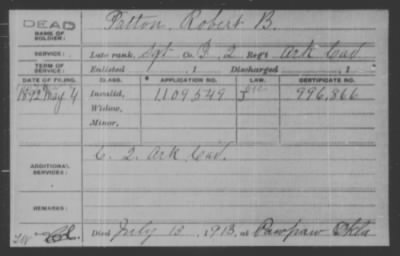 DEAD
NAME OF SOLDIER:
Patton, Robert B.
SERVICE:
Late rank, Sgt Co. B, 2 Reg't Ark Cav
TERM OF SERVICE:
Enlisted , 1 Discharged , 1
DATE OF FILING. CLASS. APPLICATION NO. CERTIFICATE NO.
1892 May 4 Invalid, 1109,549 J 996,866
Widow,
Minor,
C. 2. Ark Cav.
ADDITIONAL SERVICES:
REMARKS:
Died July 13, 1913, at Pawpaw Okla